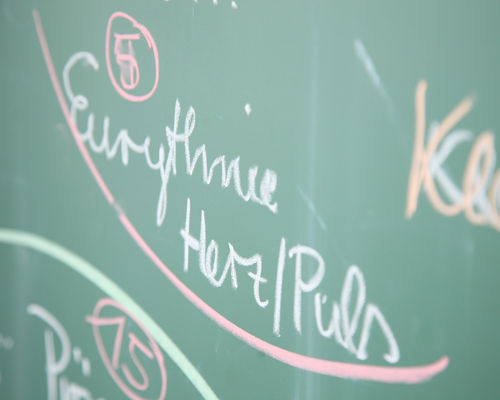 5
Eurythmie
Herz/Puls
15